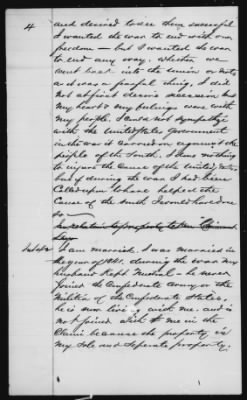 4
and desired to see them successful
I wanted the war to end with our
freedom — but I wanted the war
to end any way. Whether we
went back into the union or not
as it was a fearful thing, I did
not at first secession, but
my heart & my feelings were with
my people. I could not sympathise
with the United States Government
in the war it carried on against the
people of the South. I done nothing
to injure the Cause of the United States,
but if during the war I had been
Called upon to have helped the
Cause of the south I would have done
so —
In relation to property taken Claimant
says
I am married. I was married in
the year of 1841. during the war my
husband Kept Neutral — he never
joined the Confederate army or the
Militia of the Confederate States,
he is now living with me. and is
not joined with me in the
Claim because the property is
my sole and seperate property.